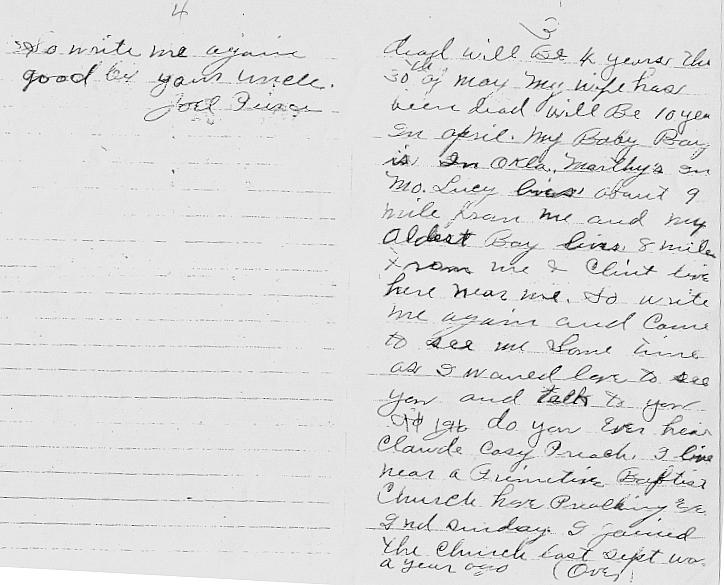 3
dead will Be 4 years the
30th of may my wife has
been dead will Be 10 yea
In april. my Baby Boy
is In Okla, Marthy's in
Mo. Lucy lives about 9
mile from me and my
Aldest Boy lives 8 mile
from me & Clint live
here near me. so write
me again and Come
to see me Some time
as I woued love to see
you and talk to you
do you Ever hear
Claude Casy Preach. I live
near a Primitive Baptist
Church have Preaching Ev
2nd sunday I joined
the Church last Sept wa
a year ago (Over)
4
so write me again
good by your uncle.
Joel